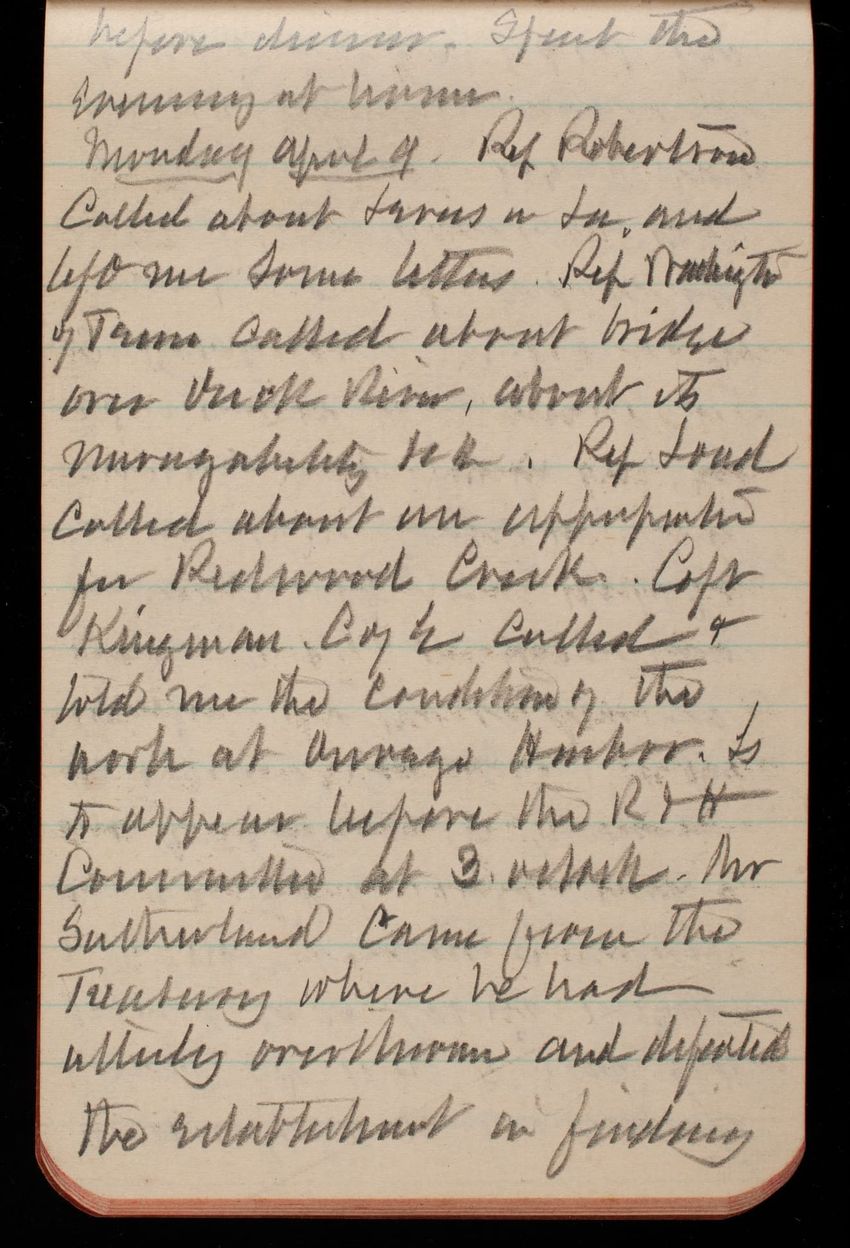 before dinner. Spent the
evening at home.
Monday April 9. Rep Robertson
Called about Levees in La. and
left me some letters. Rep Washington
of Tenn called about bridge
over Duck River, about its
navigability &c. Rep Loud
Called about an appropriation
for Redwood Creek. Capt
Kingman. C of E called &
told me the condition of the
work at Oswego Harbor. Is
to appear before the R & H
Committee at 3. oclock. Mr
Sutherland came from the
Treasury where he had
utterly overthrown and defeated
the establishment in finding